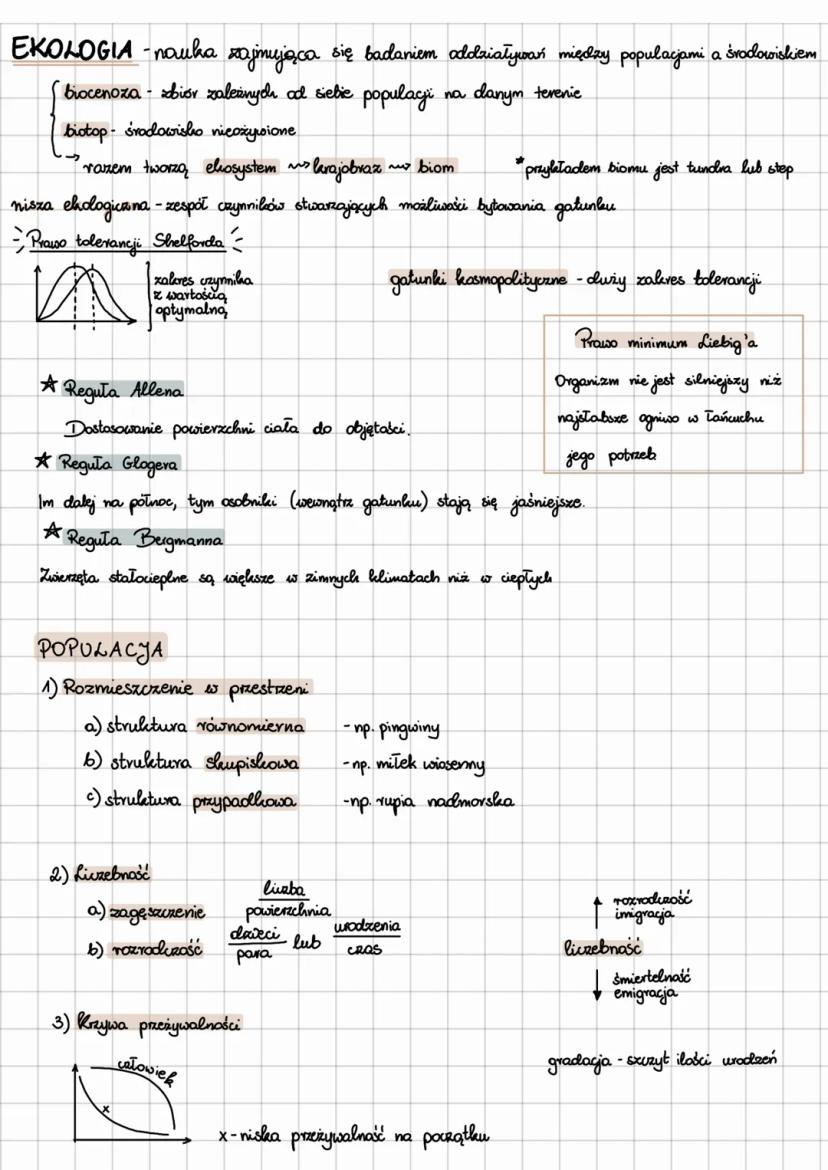 EKOLOGIA - nauka zajmująca się badaniem oddziaływań między populacjami a środowiskiem
biocenoza - zbiór zależnych od siebie populacji na danym terenie
biotop - środowisko nieożywione
→ razem tworzą ekosystem ⟿ krajobraz ⟿ biom *przykładem biomu jest tundra lub step
nisza ekologiczna - zespół czynników stwarzających możliwości bytowania gatunku
Prawo tolerancji Shelforda
zakres czynnika
z wartością
optymalną
gatunki kosmopolityczne - duży zakres tolerancji
Prawo minimum Liebig'a
Organizm nie jest silniejszy niż
najsłabsze ogniwo w łańcuchu
jego potrzeb
☆ Reguła Allena
Dostosowanie powierzchni ciała do objętości.
☆ Reguła Glogera
Im dalej na północ, tym osobniki (wewnątrz gatunku) stają się jaśniejsze.
☆ Reguła Bergmanna
Zwierzęta stałocieplne są większe w zimnych klimatach niż w ciepłych
POPULACJA
1) Rozmieszczenie w przestrzeni
a) struktura równomierna - np. pingwiny
b) struktura skupiskowa - np. miłek wiosenny
c) struktura przypadkowa - np. rupia nadmorska
2) Liczebność
a) zagęszczenie liczba / powierzchnia
b) rozrodczość dzieci / para lub urodzenia / czas
↑ rozrodczość
imigracja
liczebność
↓ śmiertelność
emigracja
3) Krzywa przeżywalności
człowiek
x
x - niska przeżywalność na początku
gradacja - szczyt ilości urodzeń